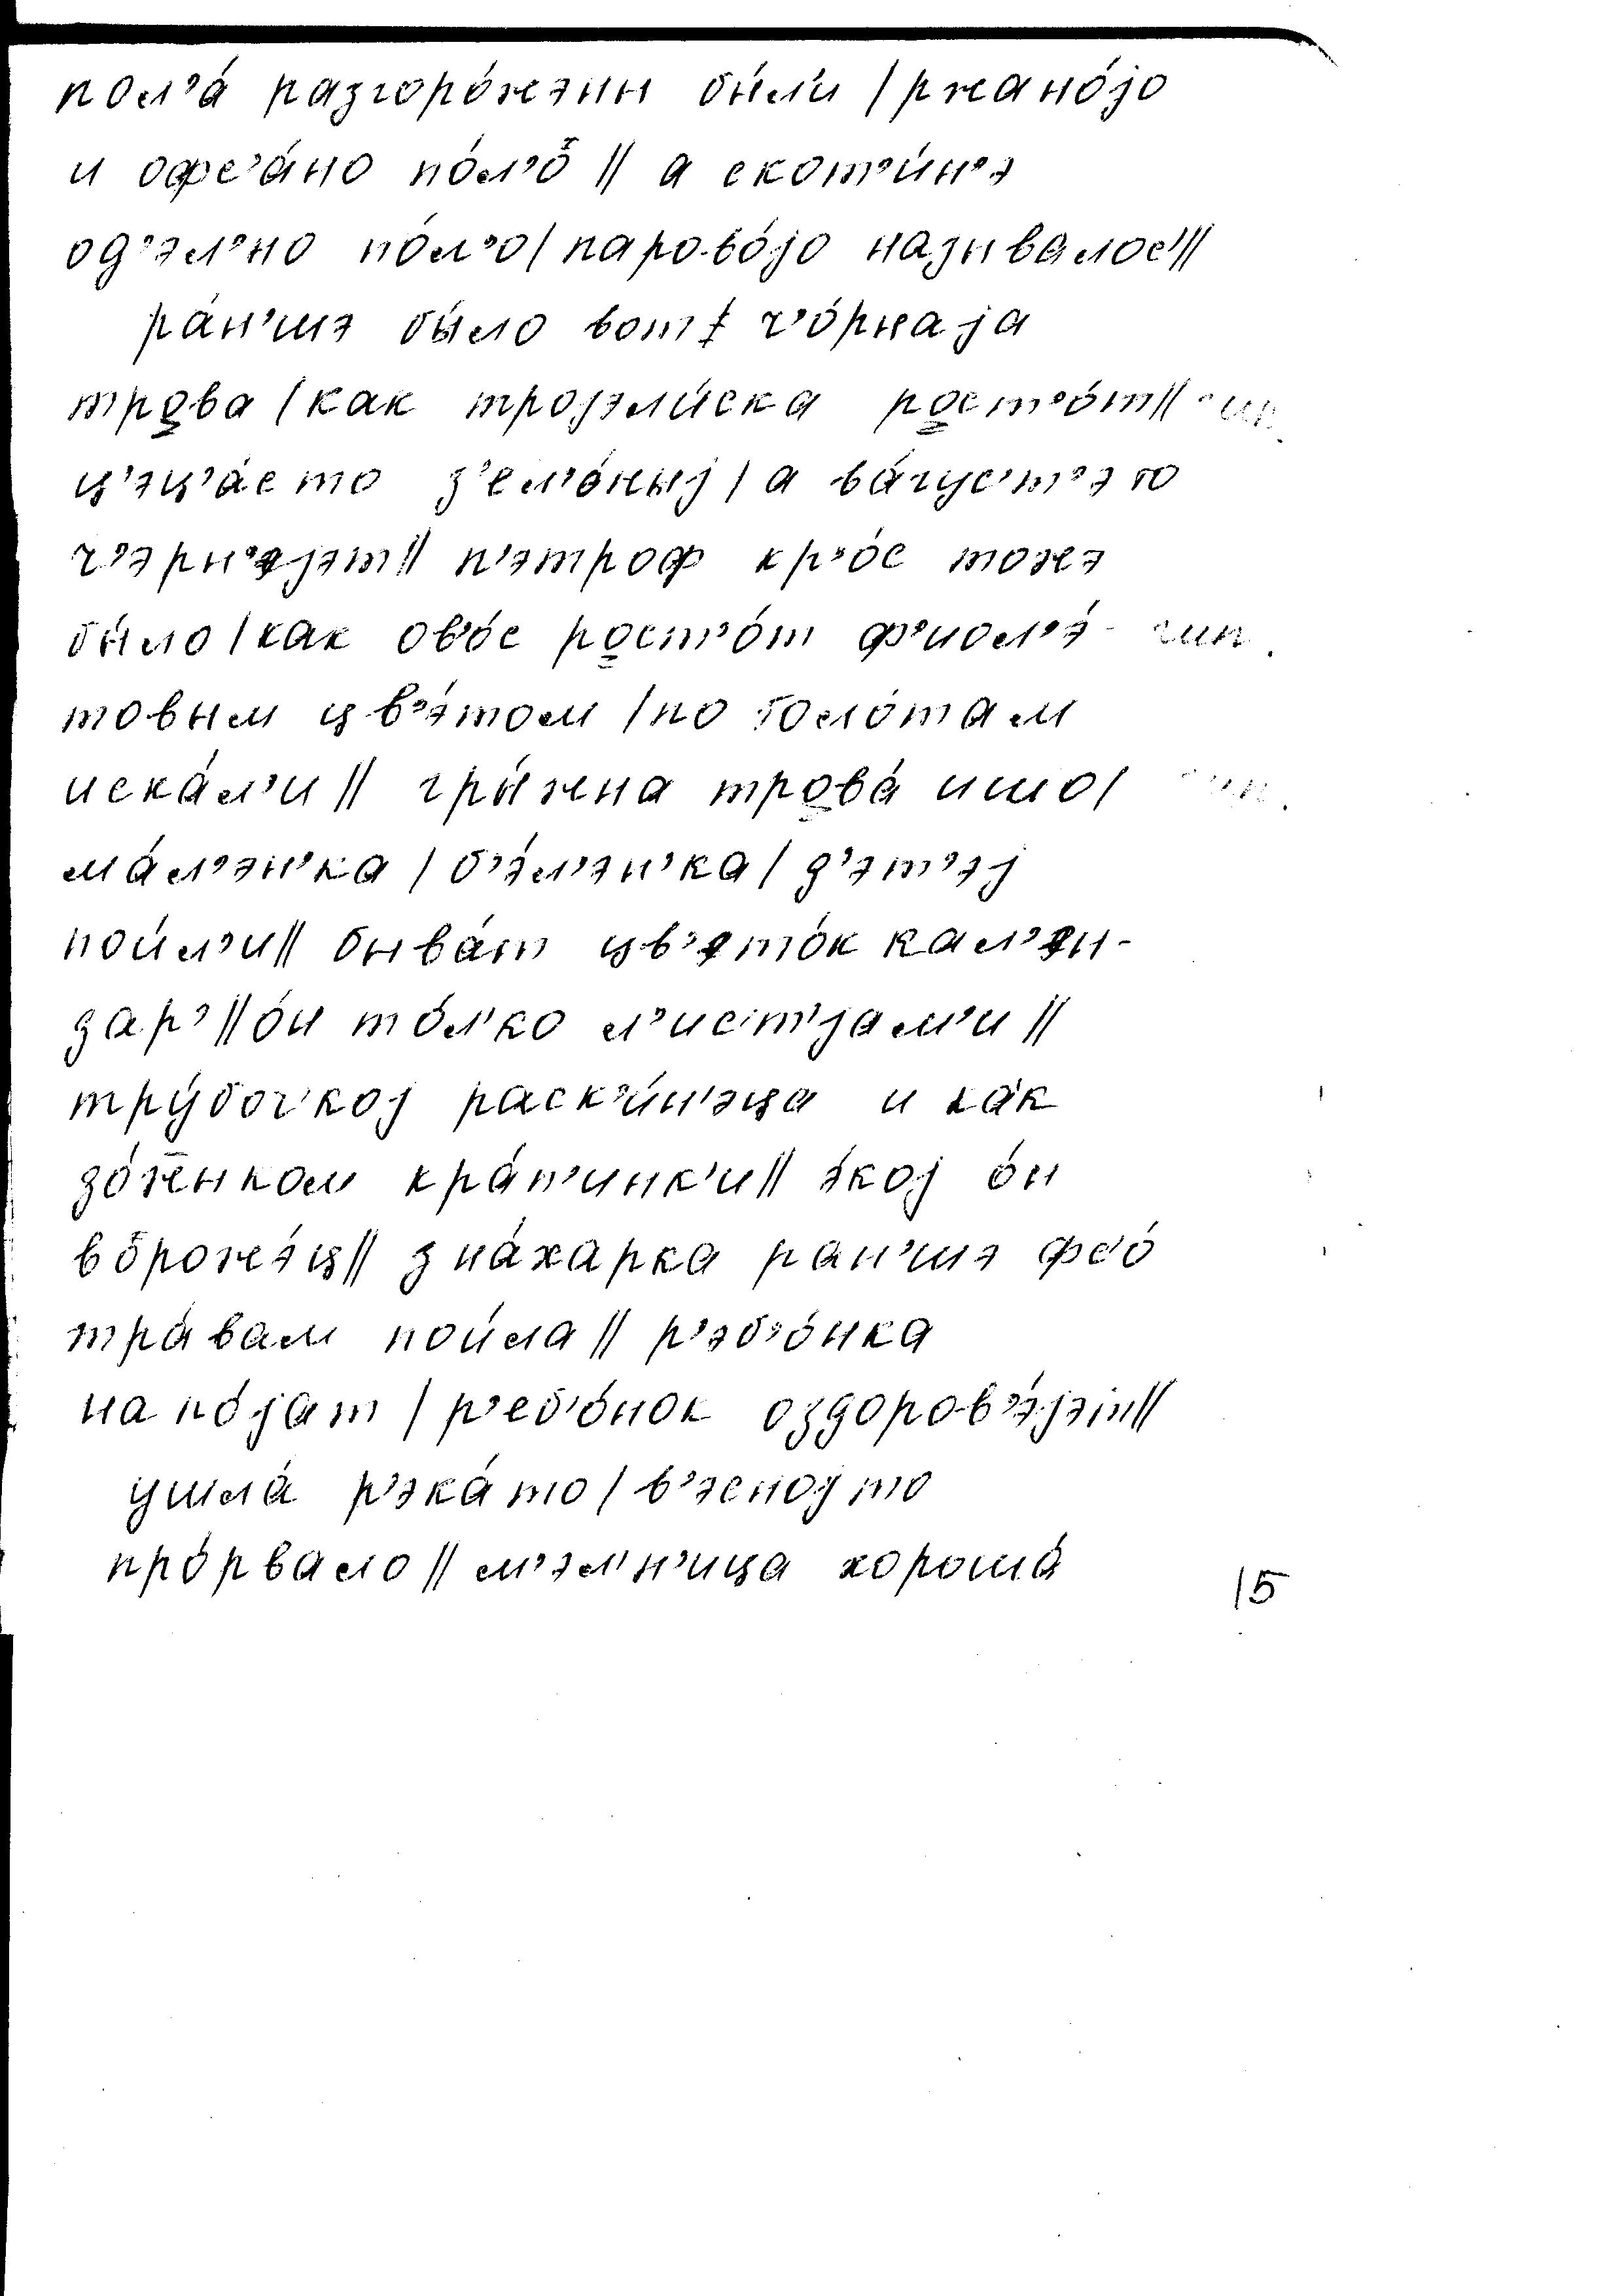 пол’а́ разгоро́жэны бы́л’и / ржано́јо
и офс’а́но по́л’о || а скот’и́н’э
од’э́л’но по́л’о / парово́јо называлос’ ||
ра́н’шэ бы́ло вот ч’о́рнаја
трова / как тројэли́ска рост’о́т ||
ц’эц’а́с то з’ел’о́ныј / а ва́густ’э то
ч’эрн’э́јэт || п’этроф кр’о́с тожэ
бы́ло / как ов’о́с рост’о́т ф’иол’э́-
товым цв’э́том / по боло́там
иска́л’и || гры́жна трова́ ишо /
ма́л’эн’ка / б’э́л’эн’ка / д’эт’эј
пои́л’и || быва́т цв’это́к кал’эн-
дар’ || о́н то́л’ко л’ист’јам’и ||
тру́боч’кој раск’и́н’эца и как
до́жэнком кра́п’инк’и || э́кој о́н
ворожэ́ц || зна́харка ран’шэ фс’о́
тра́вам пои́ла || р’эб’о́нка
напо́јат / р’еб’о́нок оздоров’э́јэт ||
ушла́ р’эка́ то / в’эсној то
про́рвало || м’эл’н’ица хороша́
15